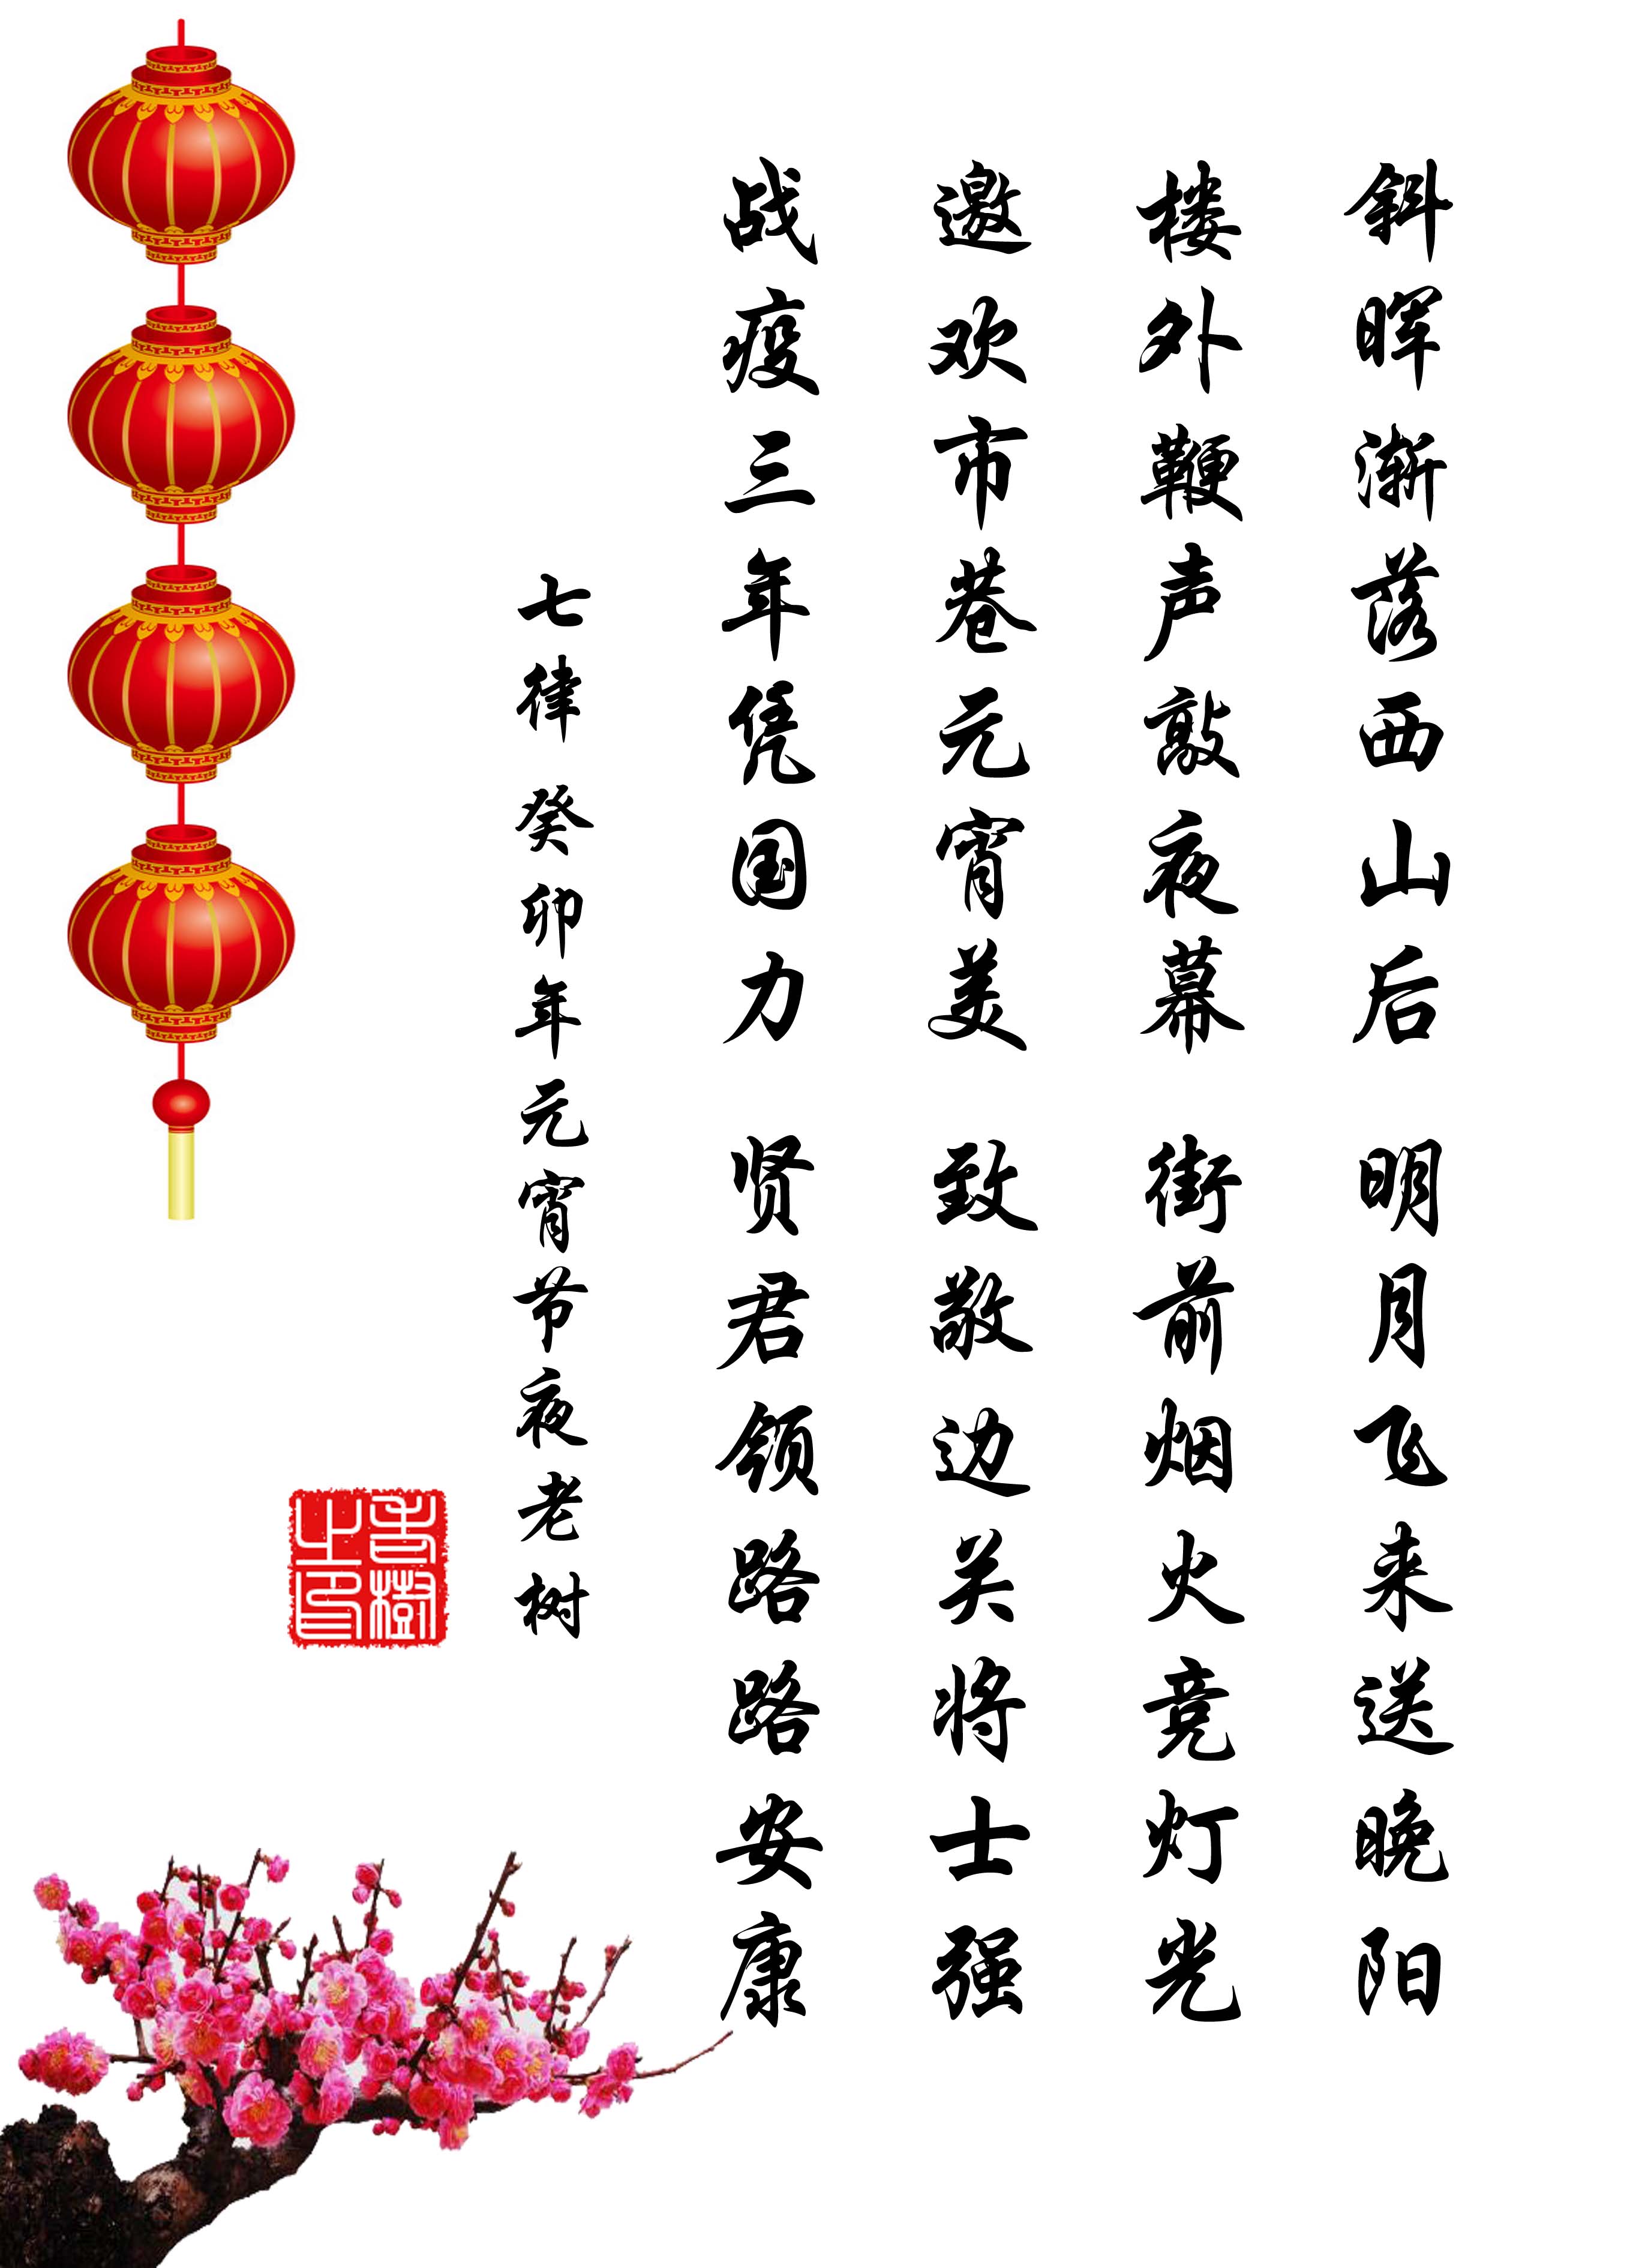 斜晖渐落西山后 明月飞来送晚阳
楼外鞭声敲夜幕 街前烟火竞灯光
邀欢市巷元宵美 致敬边关将士强
战疫三年凭国力 贤君领路路安康
七律 癸卯年元宵节夜老树
老樹之印